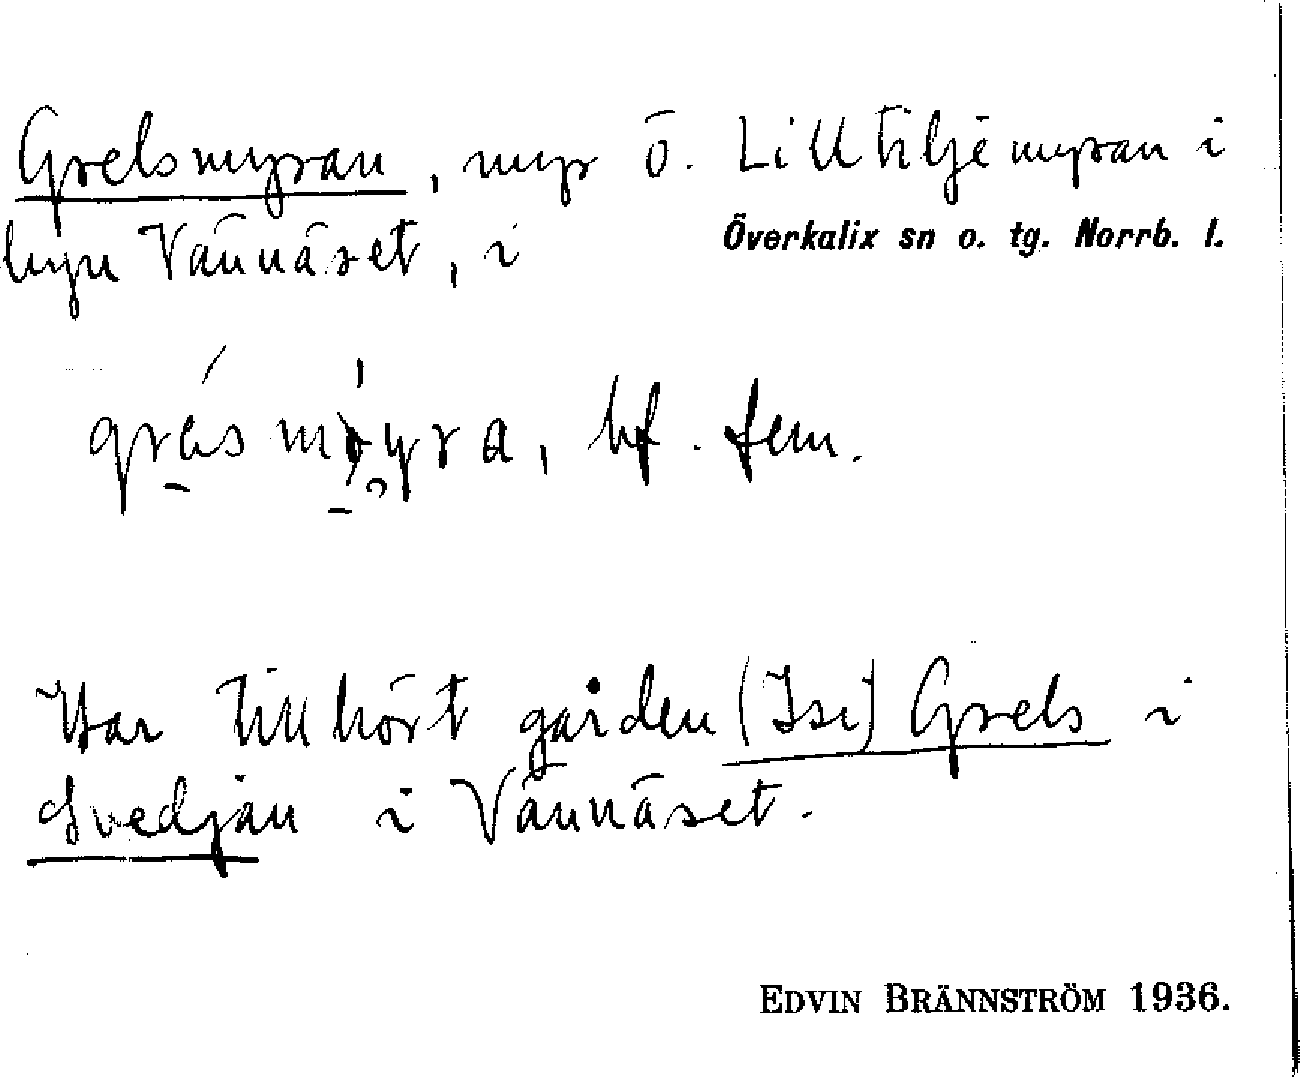 Grelsmyran, myr ö. Lilltiljemyran i
byn Vännäset, i Överkalix sn o. tg. Norrb. l.
bf. fem.
Har tillhört gården (Isi) Grels i
Svedjan i Vännäset.
EDVIN BRÄNNSTRÖM 1936.